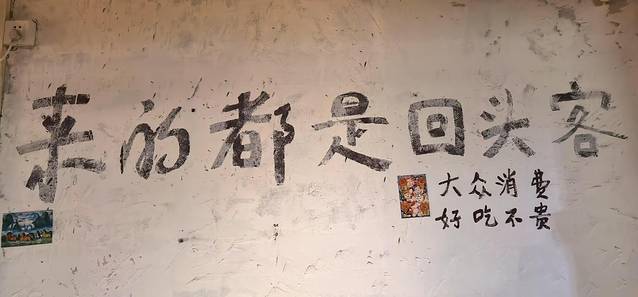 来的都是回头客
大众消费
好吃不贵